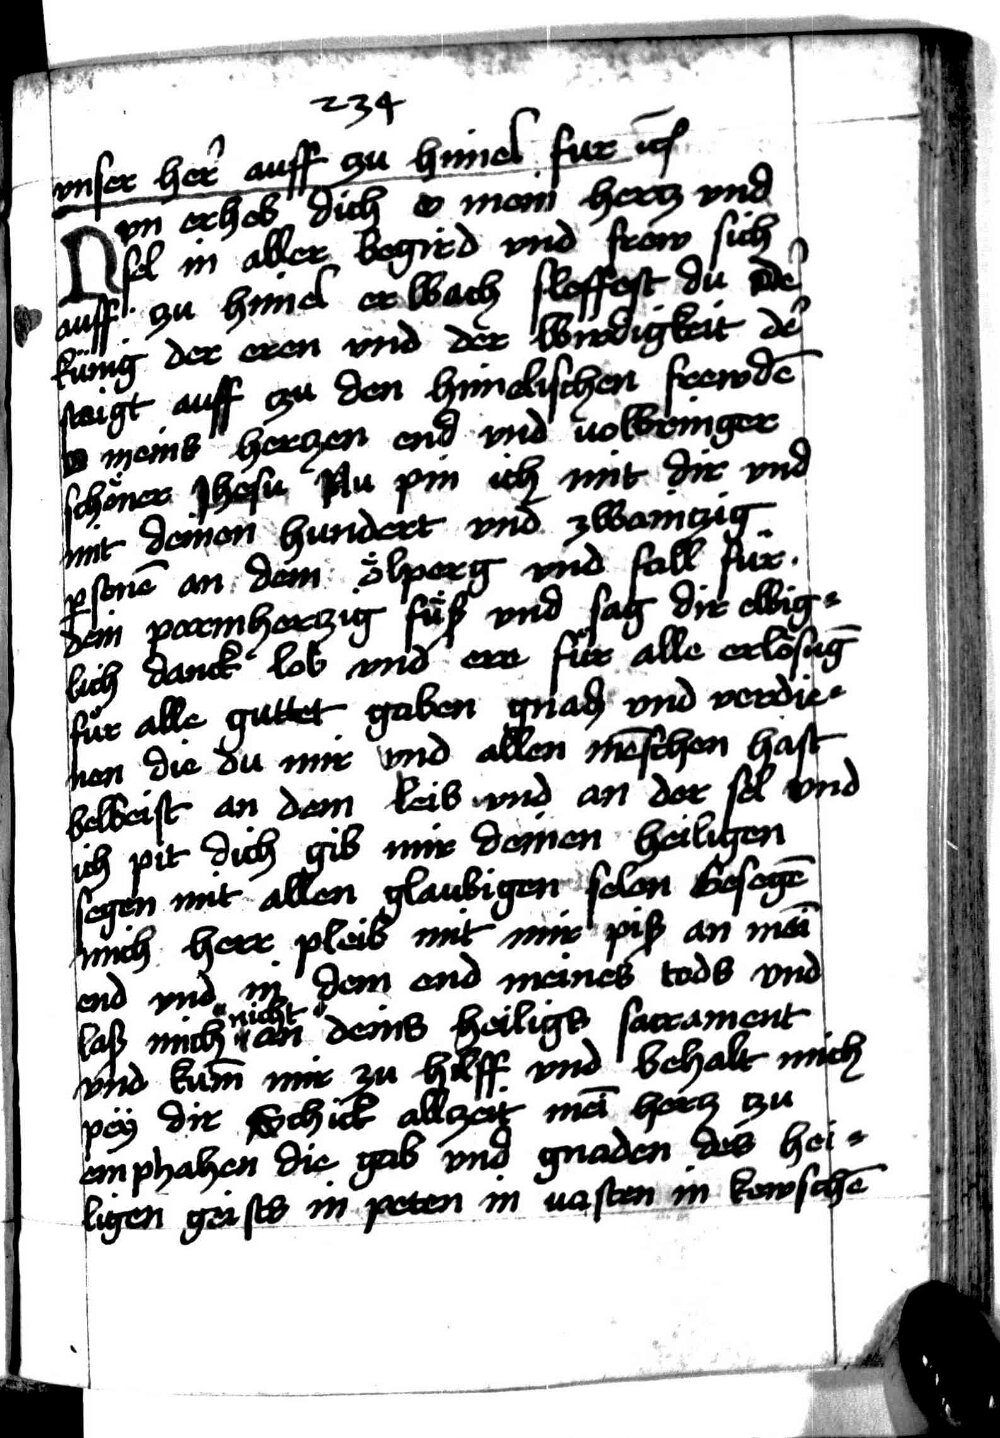 234
vnser her̄ auff zu himel fur īch
Nvn erheb dich o mein hertz vnd
sel in aller begird vnd frew sich
auff zu himel erwach sleffest du de᷑
künig der eren vnd der wirdigkeit de᷑
staigt auff zu den himelischen frewdē
O meins hertzen end vnd volbringer
schöner Jhesu Nu pin ich mit dir vnd
mit deinen hundert vnd zwaintzig
ꝑsonē an dem ölperg vnd fall für
dein parmhertzig füß vnd sag dir ewig⸗
lich danck lob vnd ere für alle erlösūg
für alle guttet gaben gnad vnd verdie⸗
nen die du mir vnd allen mēschen hast
beweist an dem leib vnd an der sel vnd
ich pit dich gib mir deinen heiligen
segen mit allen glaubigen selen Gesegē
mich herr pleib mit mir piß an mei̅
end vnd in dem end meines tods vnd
laß mich nicht an deins heiligs sacrament
vnd kum̄ mir zu hilff vnd behalt mich
pey dir Schick allzeit mei̅ hertz tzu
emphahen die gab vnd gnaden des hei⸗
ligen geists in peten in vasten in kewschē